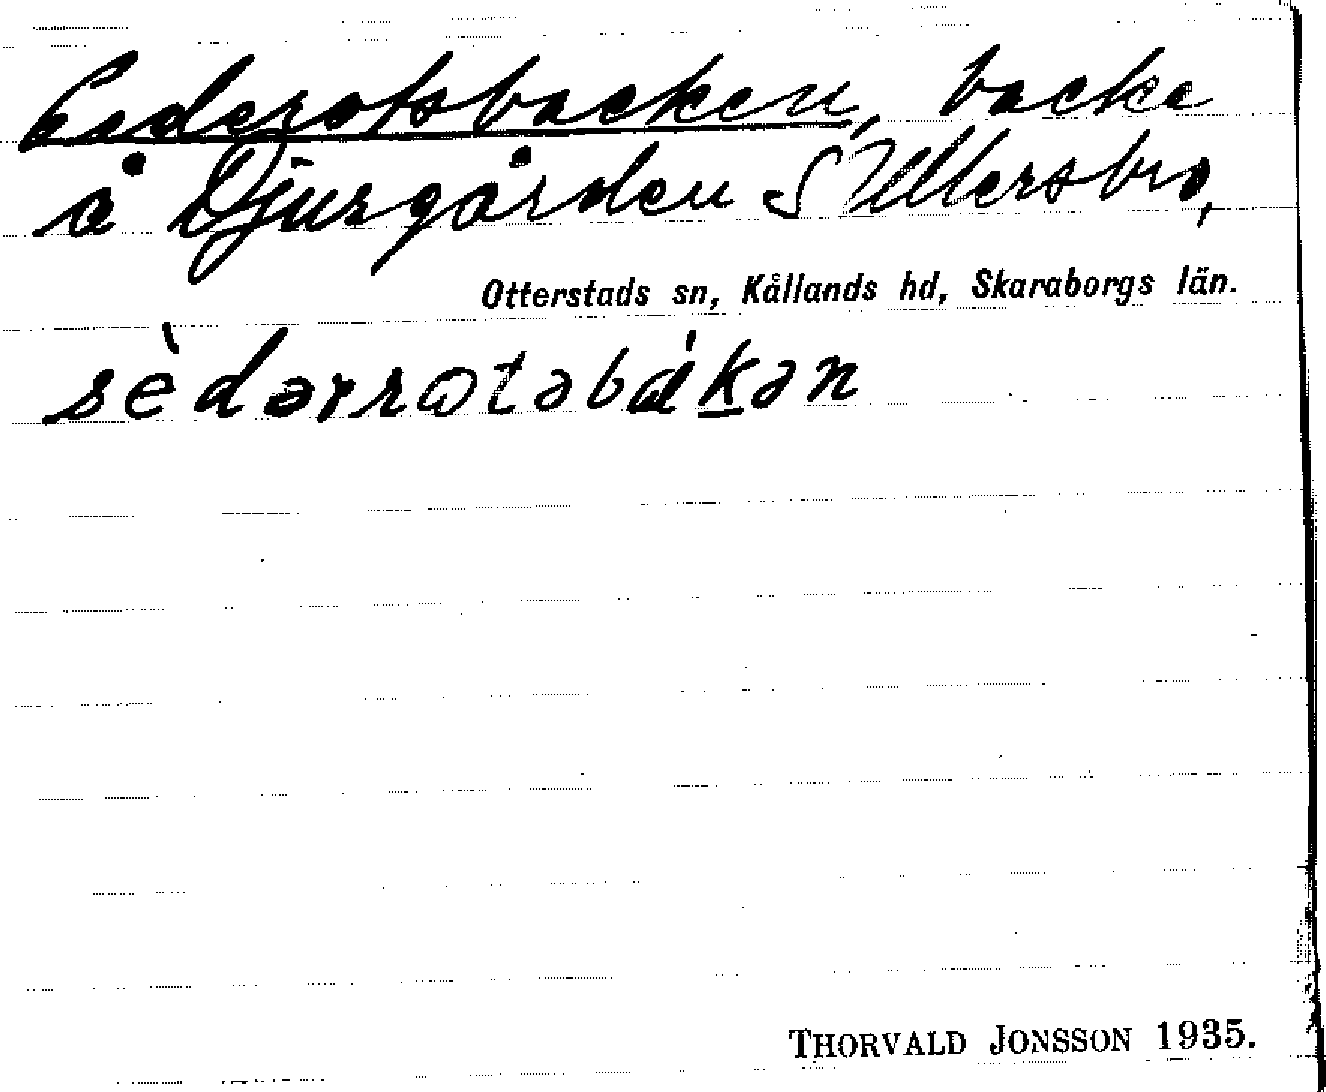 Cederotsbacken, backe
å Djurgården S Ullersbro,
Otterstads sn, Kållands hd, Skaraborgs län.
sèdərrωtəbák̲ən
THORVALD JONSSON 1935.